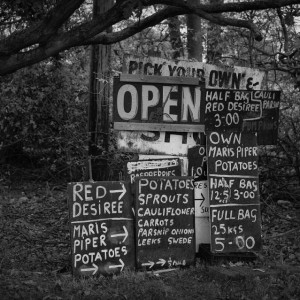 PICK YOUR OWN
OPEN
SH
HALF BAG
RED DESIREE
3-00
OWN
MARIS PIPER
POTATOES
HALF BAG
12.5 3-00
FULL BAG
25KGS
5-00
CAULI
RASPBERRIES
RED →
DESIREE
MARIS
PIPER →
POTATOES
→ →
POTATOES
SPROUTS
CAULIFLOWER
CARROTS
PARSNIP ONIONS
LEEKS SWEDE
→ →